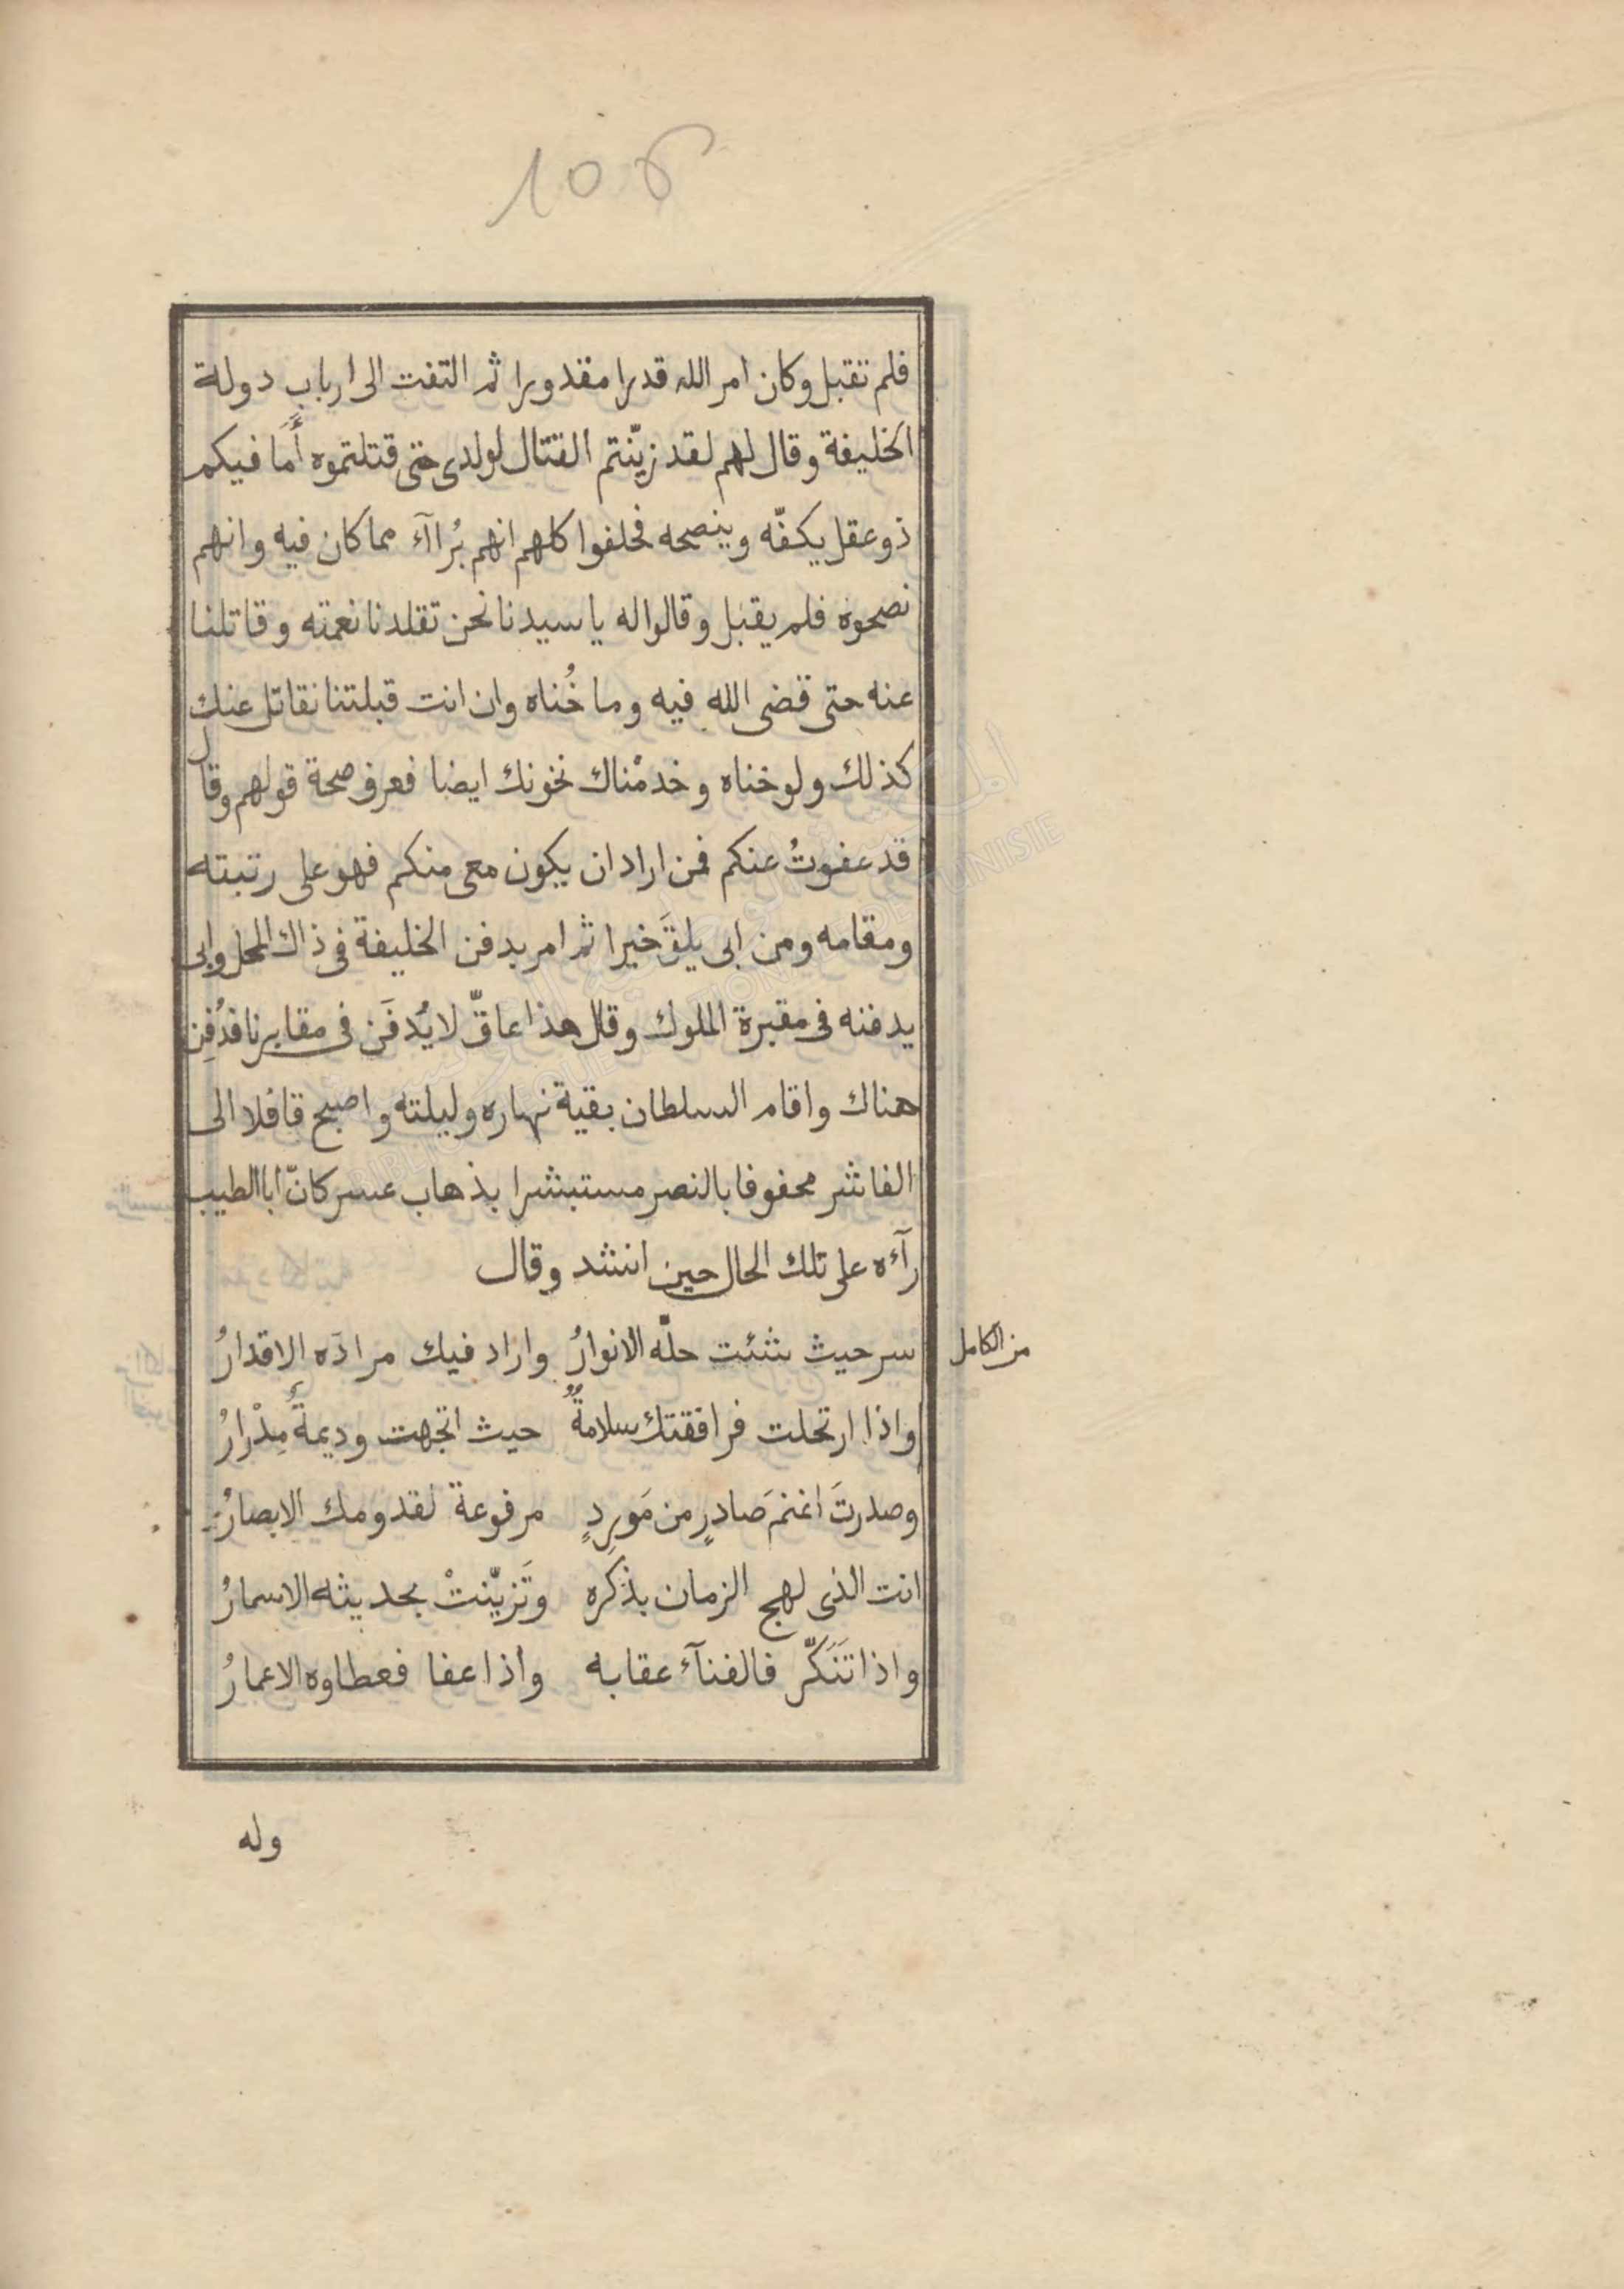 106
فلم تقبل وكان امر الله قدرا مقدورا ثم التفت الى ارباب دولة
الخليفة وقال لهم لقد زيّنتم القتال لولدى حتى قتلتموه أَمَا فيكم
ذو عقل يكفّه وينصحه فحلفوا كلهم انهم بُرآآء مما كان فيه وانهم
نصحوه فلم يقبل وقالوا له يا سيدنا نحن تقلدنا نعمته وقاتلنا
عنه حتى قضى الله فيه وما خُناه وان انت قبلتنا نقاتل عنك
كذلك ولو خناه وخدمْناك نخونك ايضا فعرف صحة قولهم وقال
قد عفوتُ عنكم فمن اراد ان يكون معى منكم فهو على رتبته
ومقامه ومن ابى يلقَ خيرا ثم امر بدفن الخليفة فى ذاك المحل وابى
يدفنه فى مقبرة الملوك وقال هذا عاقّ لا يُدفَن فى مقابرنا فدُفِن
هناك واقام السلطان بقية نهاره وليلته واصبح قافلا الى
الفاشر محفوفا بالنصر مستبشرا بذهاب عسر كانّ ابا الطيب
رآءه على تلك الحال حين انشد وقال
سر حيث شئت حلّه الانوارُ واراد فيك مرادَه الاقدارُ
من الكامل
واذا ارتحلت فرافقتك سلامةٌ حيث اتجهت وديمةٌ مِدْرارُ
وصدرتَ اغنمَ صادرٍ من مَورِدٍ مرفوعة لقدومك الابصارُ
انت الذى لهج الزمان بذكره وتَزيّنتْ بحديثه الاسمارُ
واذا تَنَكّر فالفنآء عقابه واذا عفا فعطاوه الاعمارُ
وله